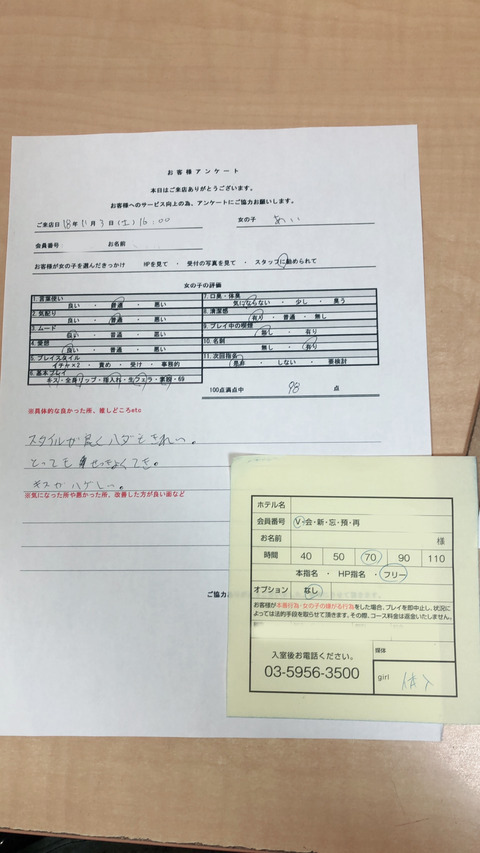 お客様アンケート
本日はご来店ありがとうございます。
お客様へのサービス向上の為、アンケートにご協力お願いします。
ご来店日 18年 11月 3日 (土) 16:00 女の子 あい
会員番号 お名前
お客様が女の子を選んだきっかけ HPを見て ・ 受付の写真を見て ・ スタッフに勧められて
女の子の評価
1. 言葉使い
良い ・ 普通 ・ 悪い
2. 気配り
良い ・ 普通 ・ 悪い
3. ムード
良い ・ 普通 ・ 悪い
4. 愛想
良い ・ 普通 ・ 悪い
5. プレイスタイル
イチャ×2 ・ 責め ・ 受け ・ 事務的
6. 基本プレイ
キス・全身リップ・指入れ・生フェラ・素股・69
7. 口臭・体臭
気にならない ・ 少し ・ 臭う
8. 清潔感
有り ・ 普通 ・ 無し
9. プレイ中の喫煙
無し ・ 有り
10. 名刺
無し ・ 有り
11. 次回指名
是非 ・ しない ・ 要検討
100点満点中 98 点
※具体的な良かった所、推しどころetc
スタイルが良くハダもきれい。
とっても
キスがハゲしい。
※気になった所や悪かった所、改善した方が良い面など
ご協力
ホテル名
会員番号 V・会・新・忘・預・再
お名前 様
時間 40 50 70 90 110
本指名 ・ HP指名 ・ フリー
オプション なし
お客様が本番行為・女の子の嫌がる行為をした場合、プレイを即中止し、状況に
よっては法的手段を取らせて頂きます。その際、コース料金は返金いたしません。
入室後お電話ください。
03-5956-3500
媒体
girl 体入